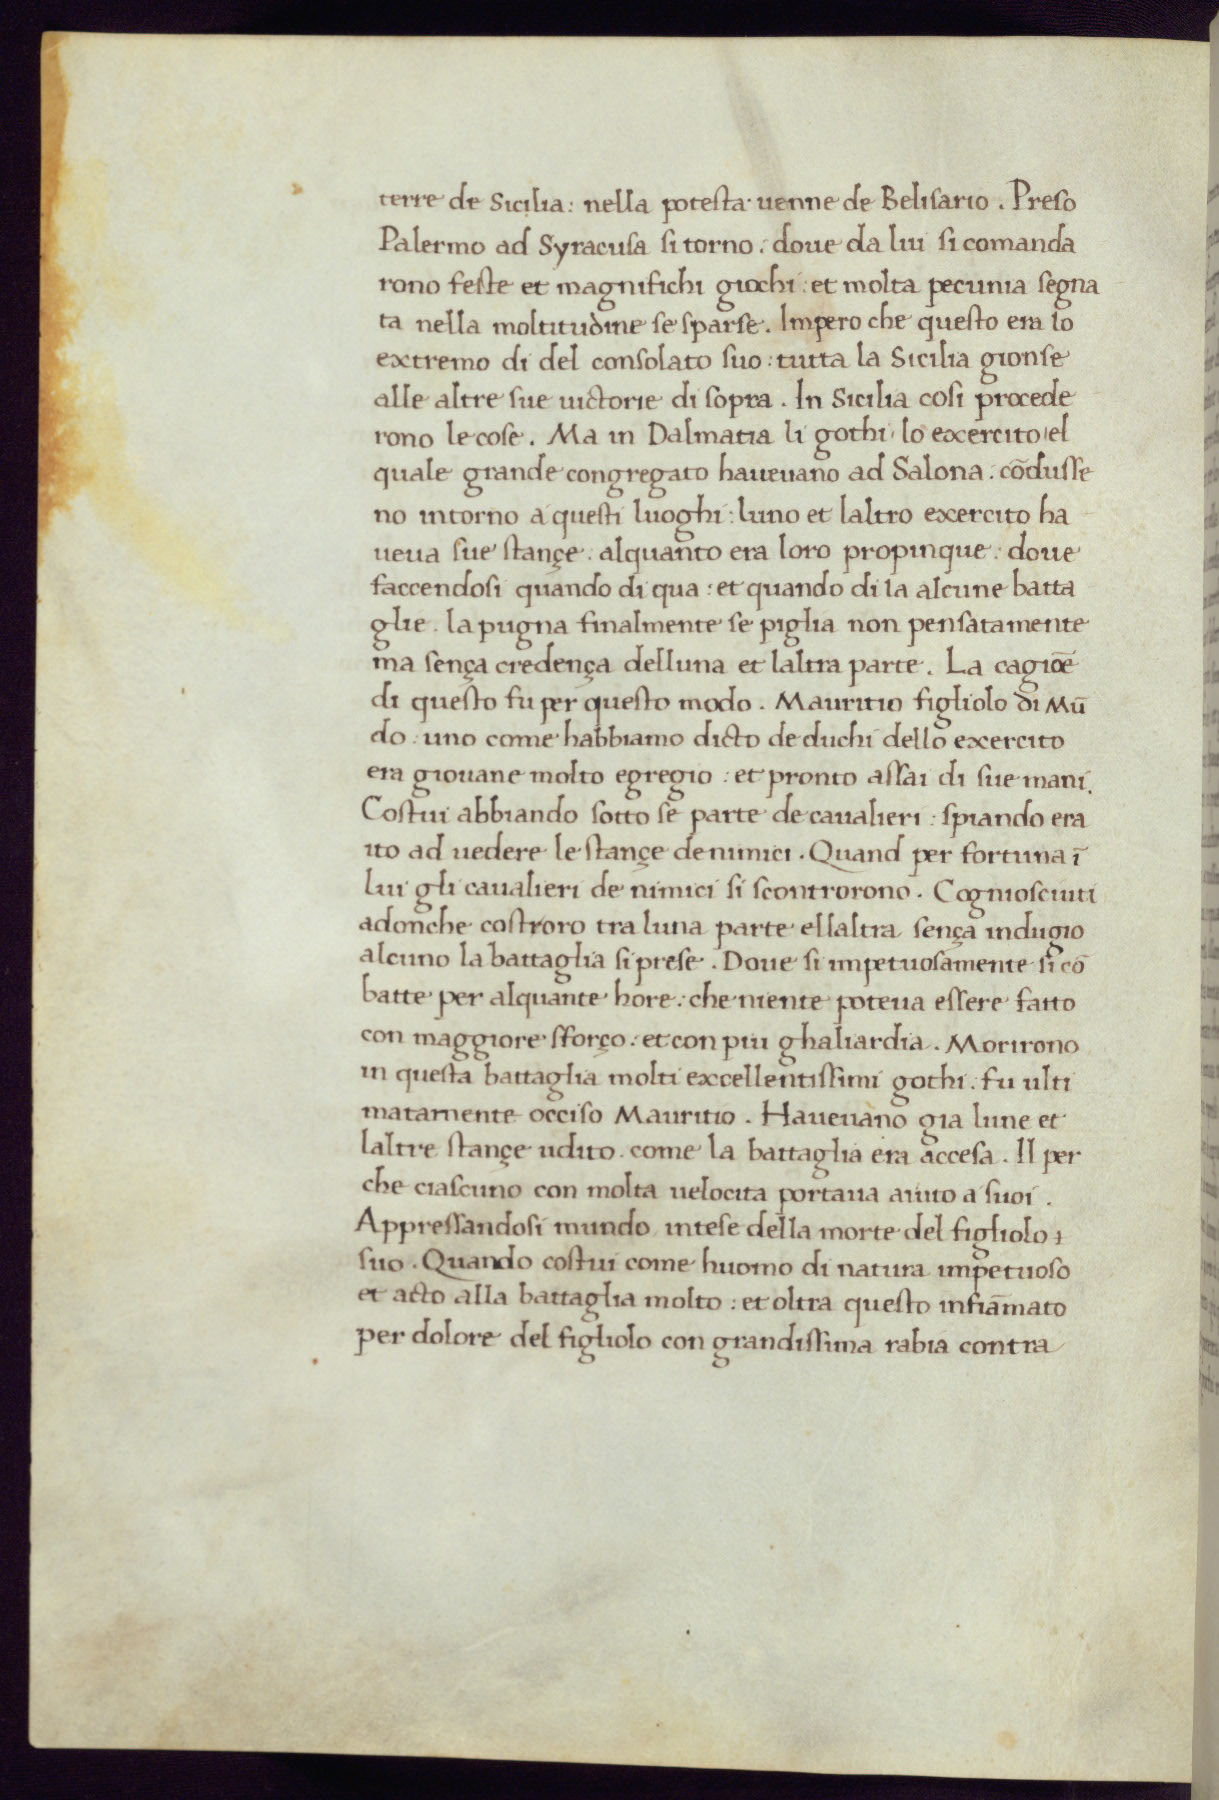 terre de Sicilia: nella potesta uenne de Belisario. Preso
Palermo ad Syracusa si torno: doue da lui si comanda
rono feste et magnifichi giochi: et molta pecunia segna
ta nella moltitudine se sparse. Impero che questo era lo
extremo di del consolato suo: tutta la Sicilia gionse
alle altre sue uictorie di sopra. In Sicilia cosi procede
rono le cose. Ma in Dalmatia li gothi lo exercito el
quale grande congregato haueuano ad Salona: cōdusse
no intorno a questi luoghi: luno et laltro exercito ha
ueua sue stançe. alquanto era loro propinque: doue
faccendosi quando di qua: et quando di la alcune batta
glie. la pugna finalmente se piglia non pensatamente
ma sença credença delluna et laltra parte. La cagiōe
di questo fu per questo modo. Mauritio figliolo di Mū
do. uno come habbiamo dicto de duchi dello exercito
era giouane molto egregio: et pronto assai di sue mani.
Costui abbiando sotto se parte de caualieri: spiando era
ito ad uedere le stançe de nimici. Quand per fortuna ī
lui gli caualieri de nimici si scontrorono. Cogniosciuti
adonche costroro tra luna parte ellaltra sença indugio
alcuno la battaglia si prese. Doue si impetuosamente si cō
batte per alquante hore: che niente poteua essere fatto
con maggiore sforço: et con piu ghaliardia. Morirono
in questa battaglia molti excellentissimi gothi. fu ulti
matamente occiso Mauritio. Haueuano gia lune et
laltre stançe udito. come la battaglia era accesa. Il per
che ciascuno con molta uelocita portaua aiuto a suoi.
Appressandosi mundo intese della morte del figliolo
suo. Quando costui come huomo di natura impetuoso
et acto alla battaglia molto: et oltra questo infiāmato
per dolore del figliolo con grandissima rabia contra